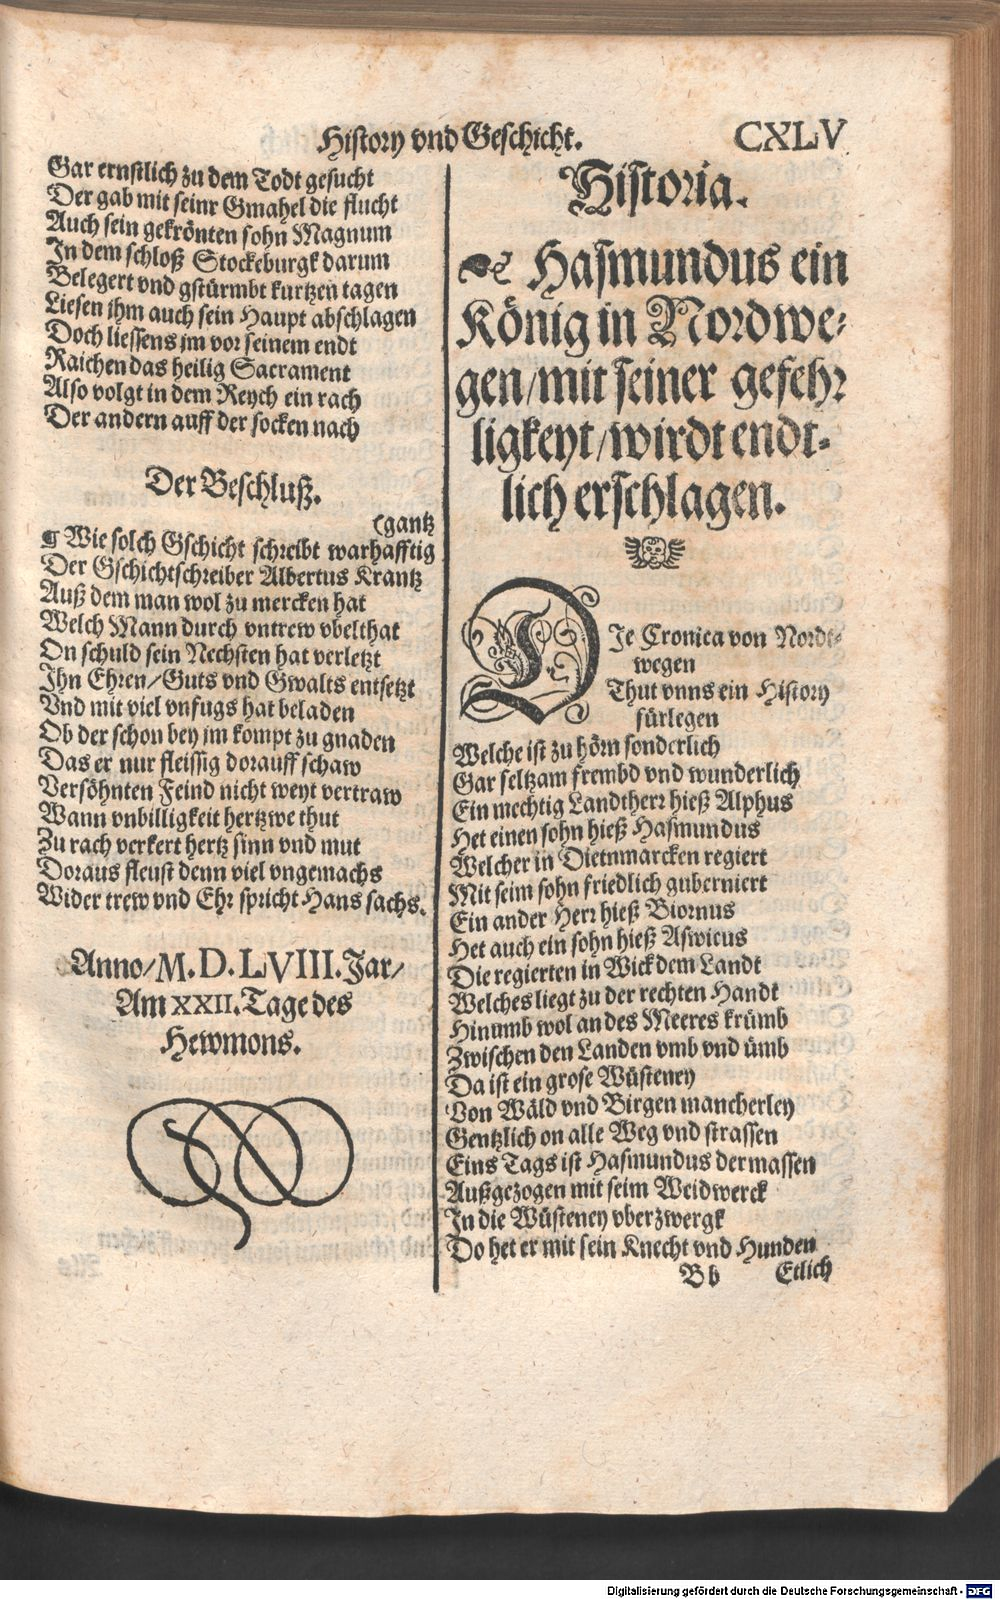 History vnd Geschicht. CXLV
Gar ernstlich zu dem Todt gesucht
Der gab mit seinr Gmahel die flucht
Auch sein gekrönten sohn Magnum
In dem schloß Stockeburgk darum
Belegert vnd gstürmbt kurtzen tagen
Liesen jhm auch sein Haupt abschlagen
Doch liessens jm vor seinem endt
Raichen das heilig Sacrament
Also volgt in dem Reych ein rach
Der andern auff der socken nach
Der Beschluß.
(gantz
¶ Wie solch Gschicht schreibt warhafftig
Der Gschichtschreiber Albertus Krantz
Auß dem man wol zu mercken hat
Welch Mann durch vntrew vbelthat
On schuld sein Nechsten hat verletzt
Ihn Ehren/Guts vnd Gwalts entsetzt
Vnd mit viel vnfugs hat beladen
Ob der schon bey jm kompt zu gnaden
Das er nur fleissig dorauff schaw
Versöhnten Feind nicht weyt vertraw
Wann vnbilligkeit hertzwe thut
Zu rach verkert hertz sinn vnd mut
Doraus fleust denn viel vngemachs
Wider trew vnd Ehr spricht Hans sachs.
Anno/M.D.LVIII.Jar/
Am XXII.Tage des
Hewmons.
Historia.
Hasmundus ein
König in Nordwe-
gen/mit seiner gefehr
ligkeyt/wirdt endt-
lich erschlagen.
DIe Cronica von Nordt-
wegen
Thut vnns ein History
fürlegen
Welche ist zu hörn sonderlich
Gar seltzam frembd vnd wunderlich
Ein mechtig Landtherr hieß Alphus
Het einen sohn hieß Hasmundus
Welcher in Dietnmarcken regiert
Mit seim sohn friedlich guberniert
Ein ander Herr hieß Biornus
Het auch ein sohn hieß Aswicus
Die regierten in Wick dem Landt
Welches liegt zu der rechten Handt
Hinumb wol an des Meeres krümb
Zwischen den Landen vmb vnd ümb
Da ist ein grose Wüsteney
Von Wäld vnd Birgen mancherley
Gentzlich on alle Weg vnd strassen
Eins Tags ist Hasmundus dermassen
Außgezogen mit seim Weidwerck
In die Wüsteney vberzwergk
Do het er mit sein Knecht vnd Hunden
Bb Etlich
Digitalisierung gefördert durch die Deutsche Forschungsgemeinschaft - DFG